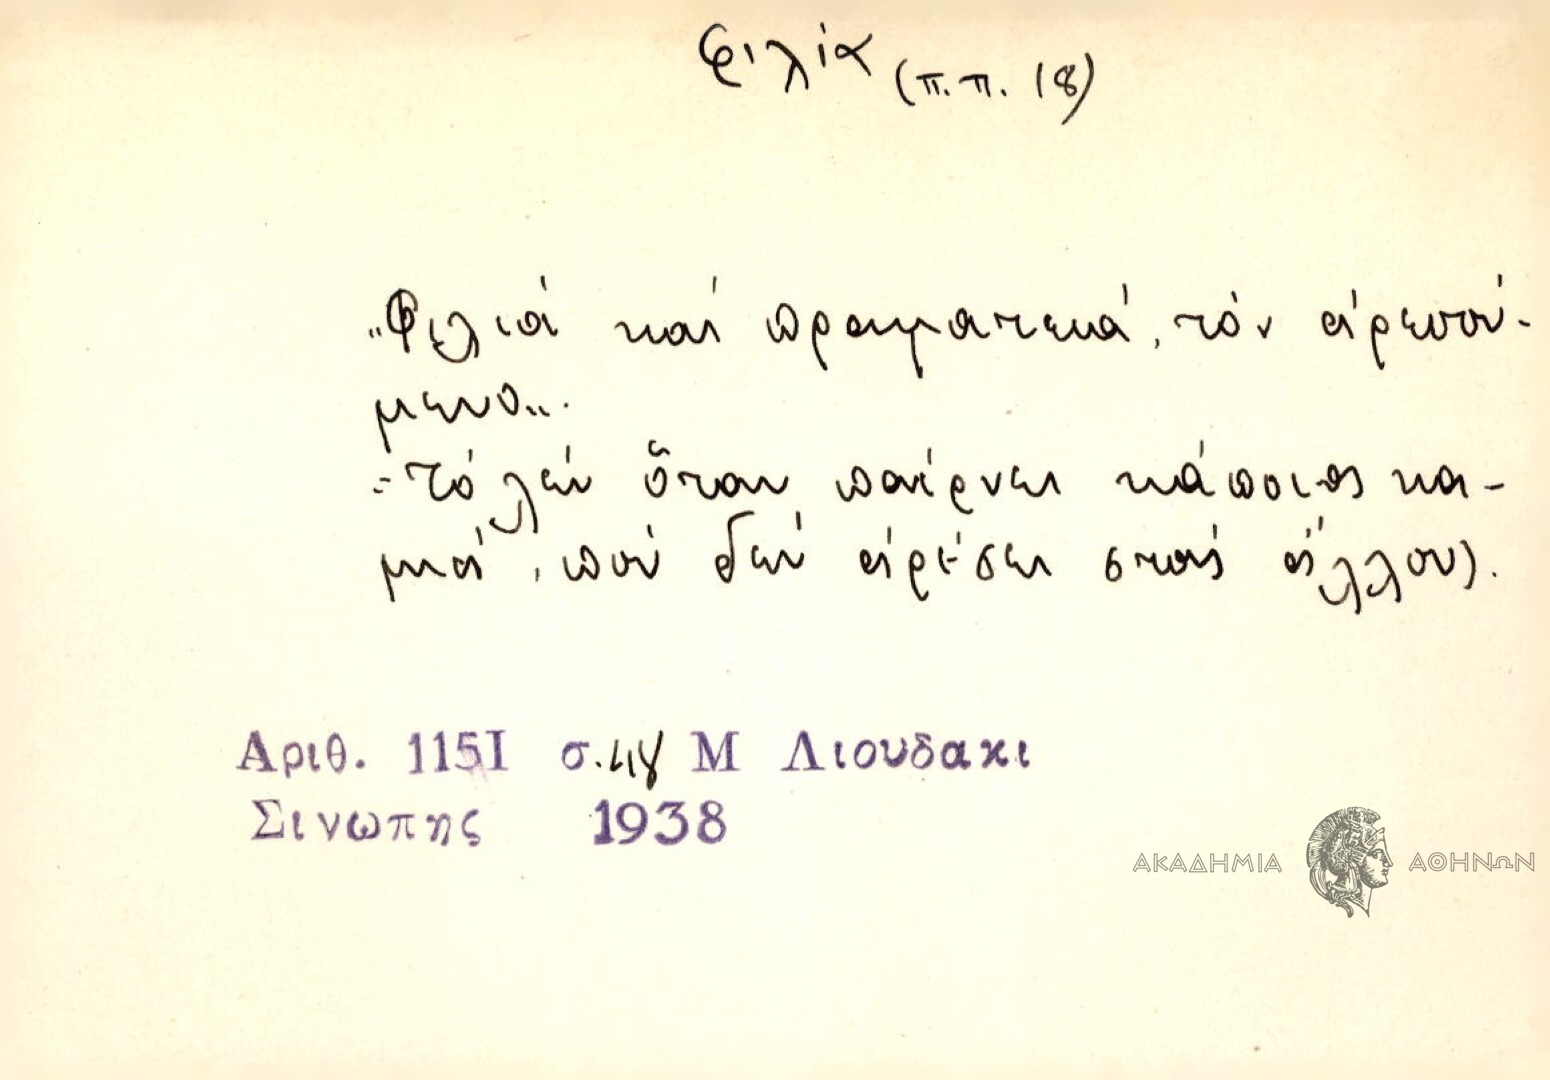 φιλία (π.π. 18)
„Φιλιά καί πραματεκά, τόν ἀρεσού-
μενο„.
=Τό λέν ὅταν παίρνει κάποιος κα-
μιά, πού δέν ἀρέσει στούς ἄλλους).
Αριθ. 115Ι σ. Μ Λιουδακι
Σινωπης 1938
ΑΚΑΔΗΜΙΑ ΑΘΗΝΩΝ